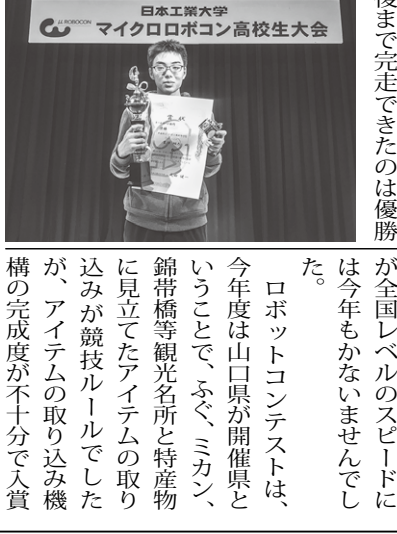 日本工業大学
μ ROBOCON
マイクロロボコン高校生大会
後まで完走できたのは優勝
が全国レベルのスピードに
は今年もかないませんでし
た。
ロボットコンテストは、
今年度は山口県が開催県と
いうことで、ふぐ、ミカン、
錦帯橋等観光名所と特産物
に見立てたアイテムの取り
込みが競技ルールでした
が、アイテムの取り込み機
構の完成度が不十分で入賞